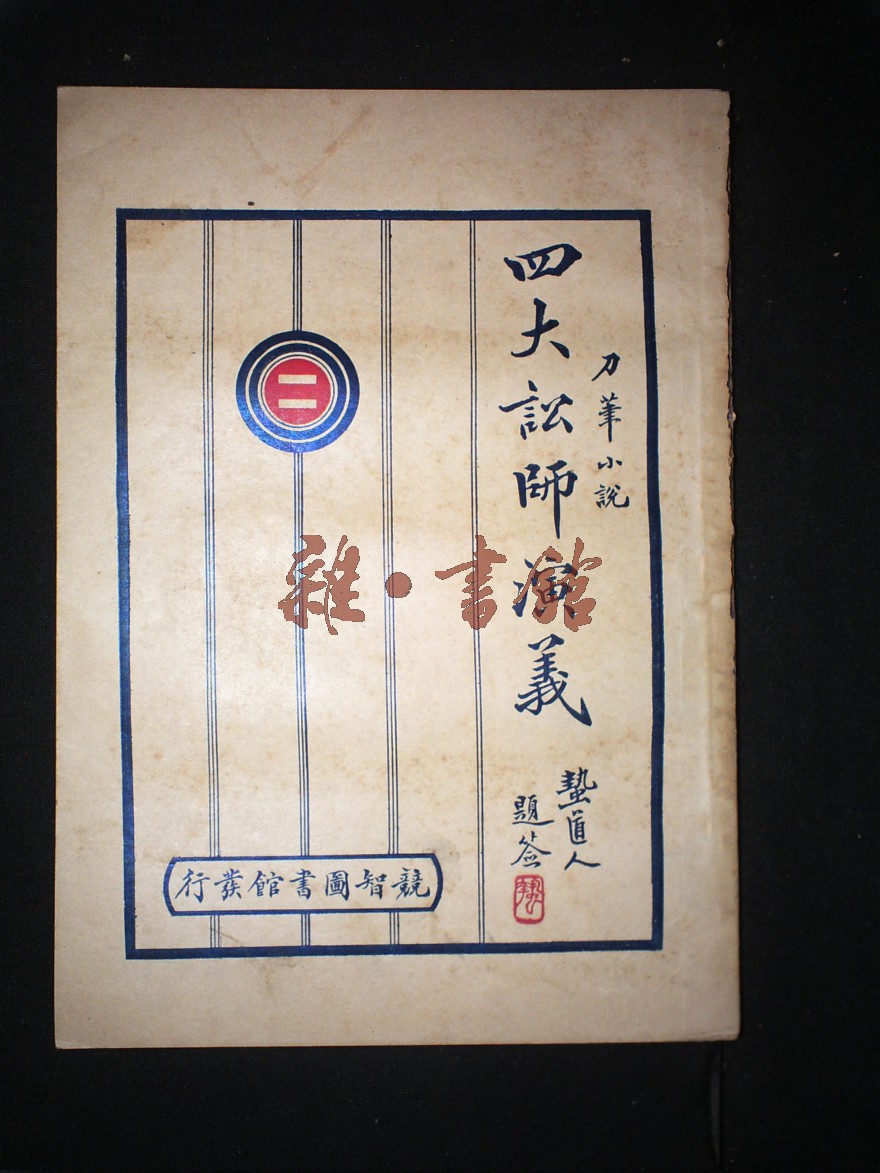 刀筆小說
四大訟師演義
蟄道人
題簽
二
競智圖書館發行
雜·書館